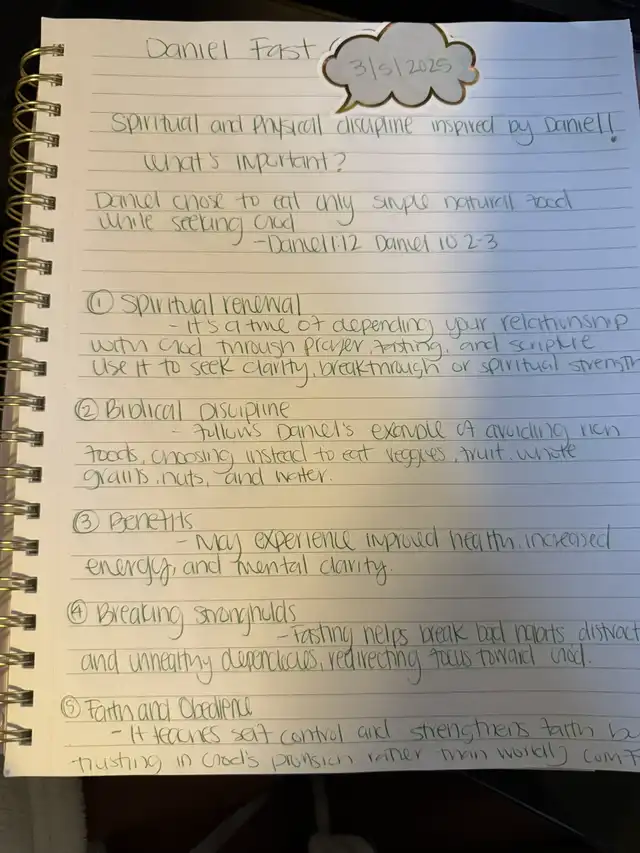 Daniel Fast
3/5/2025
Spiritual and Physical discipline inspired by Daniel!
What's important?
Daniel chose to eat only simple natural food
while seeking God
-Daniel 1:12 Daniel 10 2-3
① Spiritual renewal
- It's a time of depending your relationship
with God through prayer, fasting, and scripture
Use it to seek clarity, breakthrough or spiritual strength
② Biblical Discipline
- Follows Daniel's example of avoiding rich
foods, choosing instead to eat veggies, fruit, whole
grains, nuts, and water.
③ Benefits
- May experience improved health, increased
energy, and mental clarity.
④ Breaking strongholds
- Fasting helps break bad habits, distract
and unhealthy dependencies, redirecting focus toward God.
⑤ Faith and Obedience
- It teaches self control and strengthens faith by
trusting in God's provision rather than worldly comf